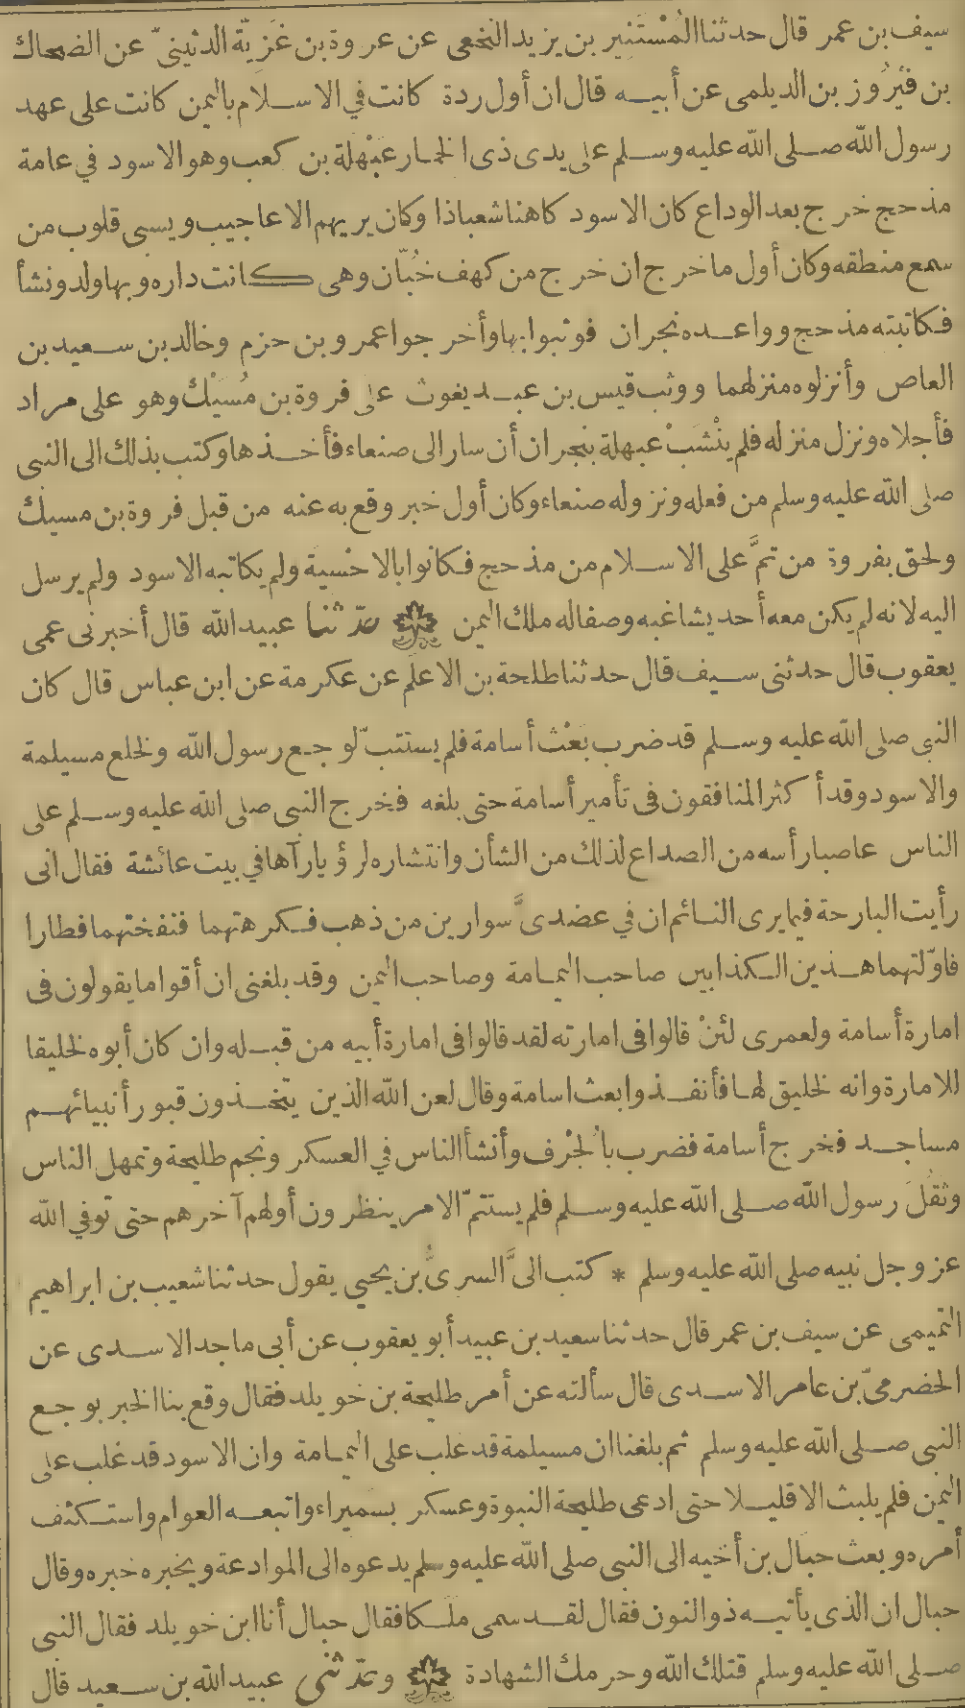 سيف بن عمر قال حدثنا المُسْتَنِير بن يزيد النخعى عن عروة بن غَزِيّة الدثينىّ عن الضحاك
بن فَيْرُوز بن الديلمى عن أبيه قال ان أول ردة كانت في الاسلام باليمن كانت على عهد
رسول الله صلى الله عليه وسلم على يدى ذى الخمار عَبْهَلة بن كعب وهو الاسود في عامة
مذحج خرج بعد الوداع كان الاسود كاهنا شعباذا وكان يريهم الاعاجيب ويسبى قلوب من
سمع منطقه وكان أول ما خرج ان خرج من كهف خُبّان وهى كانت داره وبها ولد ونشأ
فكاتبته مذحج وواعده نجران فوثبوا بها وأخرجوا عمرو بن حزم وخالد بن سعيد بن
العاص وأنزلوه منزلهما ووثب قيس بن عبد يغوث على فروة بن مُسَيْك وهو على مراد
فأجلاه ونزل منزله فلم يَنْشَبْ عبهلة بنجران أن سار الى صنعاء فأخذها وكتب بذلك الى النبى
صلى الله عليه وسلم من فعله ونزوله صنعاء وكان أول خبر وقع به عنه من قبل فروة بن مسيك
ولحق بفروة من تمَّ على الاسلام من مذحج فكانوا بالاحْسية ولم يكاتبه الاسود ولم يرسل
اليه لانه لم يكن معه أحد يشاغبه وصفا له ملك اليمن حدثنا عبيد الله قال أخبرنى عمى
يعقوب قال حدثنى سيف قال حدثنا طلحة بن الاعلم عن عكرمة عن ابن عباس قال كان
النبى صلى الله عليه وسلم قد ضرب بَعْث أسامة فلم يستتبّ لوجع رسول الله ولخلع مسيلمة
والاسود وقد أكثر المنافقون فى تأمير أسامة حتى بلغه فخرج النبى صلى الله عليه وسلم على
الناس عاصبا رأسه من الصداع لذلك من الشأن وانتشاره لرؤيا رآها في بيت عائشة فقال انى
رأيت البارحة فيما يرى النائم ان في عضدىَّ سوارين من ذهب فكرهتهما فنفختهما فطارا
فاوّلتهما هذين الكذابين صاحب اليمامة وصاحب اليمن وقد بلغنى ان أقواما يقولون فى
امارة أسامة ولعمرى لئنْ قالوا فى امارته لقد قالوا فى امارة أبيه من قبله وان كان أبوه لخليقا
للامارة وانه لخليق لها فأنفذوا بعث اسامة وقال لعن الله الذين يتخذون قبور أنبيائهم
مساجد فخرج أسامة فضرب بالجُرْف وأنشأ الناس في العسكر ونجم طليحة وتمهل الناس
وثَقُلَ رسول الله صلى الله عليه وسلم فلم يستتمّ الامر ينظرون أولهم آخرهم حتى توفي الله
عز وجل نبيه صلى الله عليه وسلم * كتب الىَّ السرىُّ بن يحيى يقول حدثنا شعيب بن ابراهيم
التميمى عن سيف بن عمر قال حدثنا سعيد بن عبيد أبو يعقوب عن أبى ماجد الاسدى عن
الحضرمىّ بن عامر الاسدى قال سألته عن أمر طليحة بن خويلد فقال وقع بنا الخبر بوجع
النبى صلى الله عليه وسلم ثم بلغنا ان مسيلمة قد غلب على اليمامة وان الاسود قد غلب على
اليمن فلم يلبث الا قليلا حتى ادعى طليحة النبوة وعسكر بسَميراء واتبعه العوام واستكثف
أمره وبعث حبَال بن أخيه الى النبى صلى الله عليه وسلم يدعوه الى الموادعة ويخبره خبره وقال
حبال ان الذى يأتيه ذو النون فقال لقد سمى ملَكا فقال حبال أنا ابن خويلد فقال النبى
صلى الله عليه وسلم قتلك الله وحرمك الشهادة وحدثنى عبيد الله بن سعيد قال